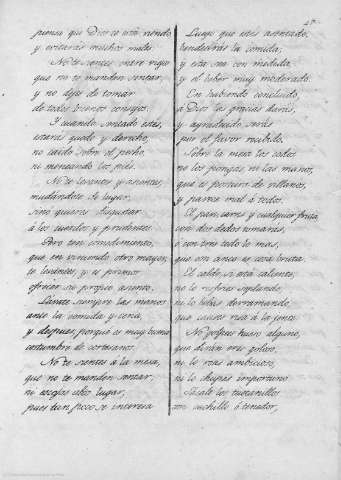 piensa que Dios te está viendo
y evitarás muchos males.
No te sientes ante viejo
que no te manden sentar,
y no dejes de tomar
de todos buenos consejos.
Y cuando sentado estés,
estarás quedo y derecho,
no caido sobre el pecho,
ni meneando los pies.
No te levantes y asientes,
mudándote de lugar,
sino quieres disgustar
á los cuerdos y prudentes.
Pero ten conocimiento,
que en viniendo otro mayor,
te levantes, y es primor
ofrecer su propio asiento.
Lávate siempre las manos
ante la comida y cena,
y despues, porque es muy buena
costumbre de cortesanos.
No te sientes á la mesa,
que no te manden sentar,
ni escojas alto lugar,
pues tan poco se interesa
Luego que estés asentado,
bendecirás la comida,
y esta con medida,
y el beber muy moderado.
En habiendo concluido,
á Dios las gracias darás,
y agradecido serás
por el favor recibido.
Sobre la mesa los codos
no los pongas, ni las manos,
que es postura de villanos,
y parece mal á todos.
El pan, carne y cualquier fruta
con dos dedos tomarás,
ó con tres todo lo mas,
que con cinco es cosa bruta.
El caldo si está caliente,
no le resfries soplando,
ni lo bebas derramando,
que causa risa á la gente.
No golpees hueso alguno,
que dirán eres goloso,
ni le roas ambicioso,
ni le chupes importuno.
Sácale los tuetanillos
con cuchillo ó tenedor,